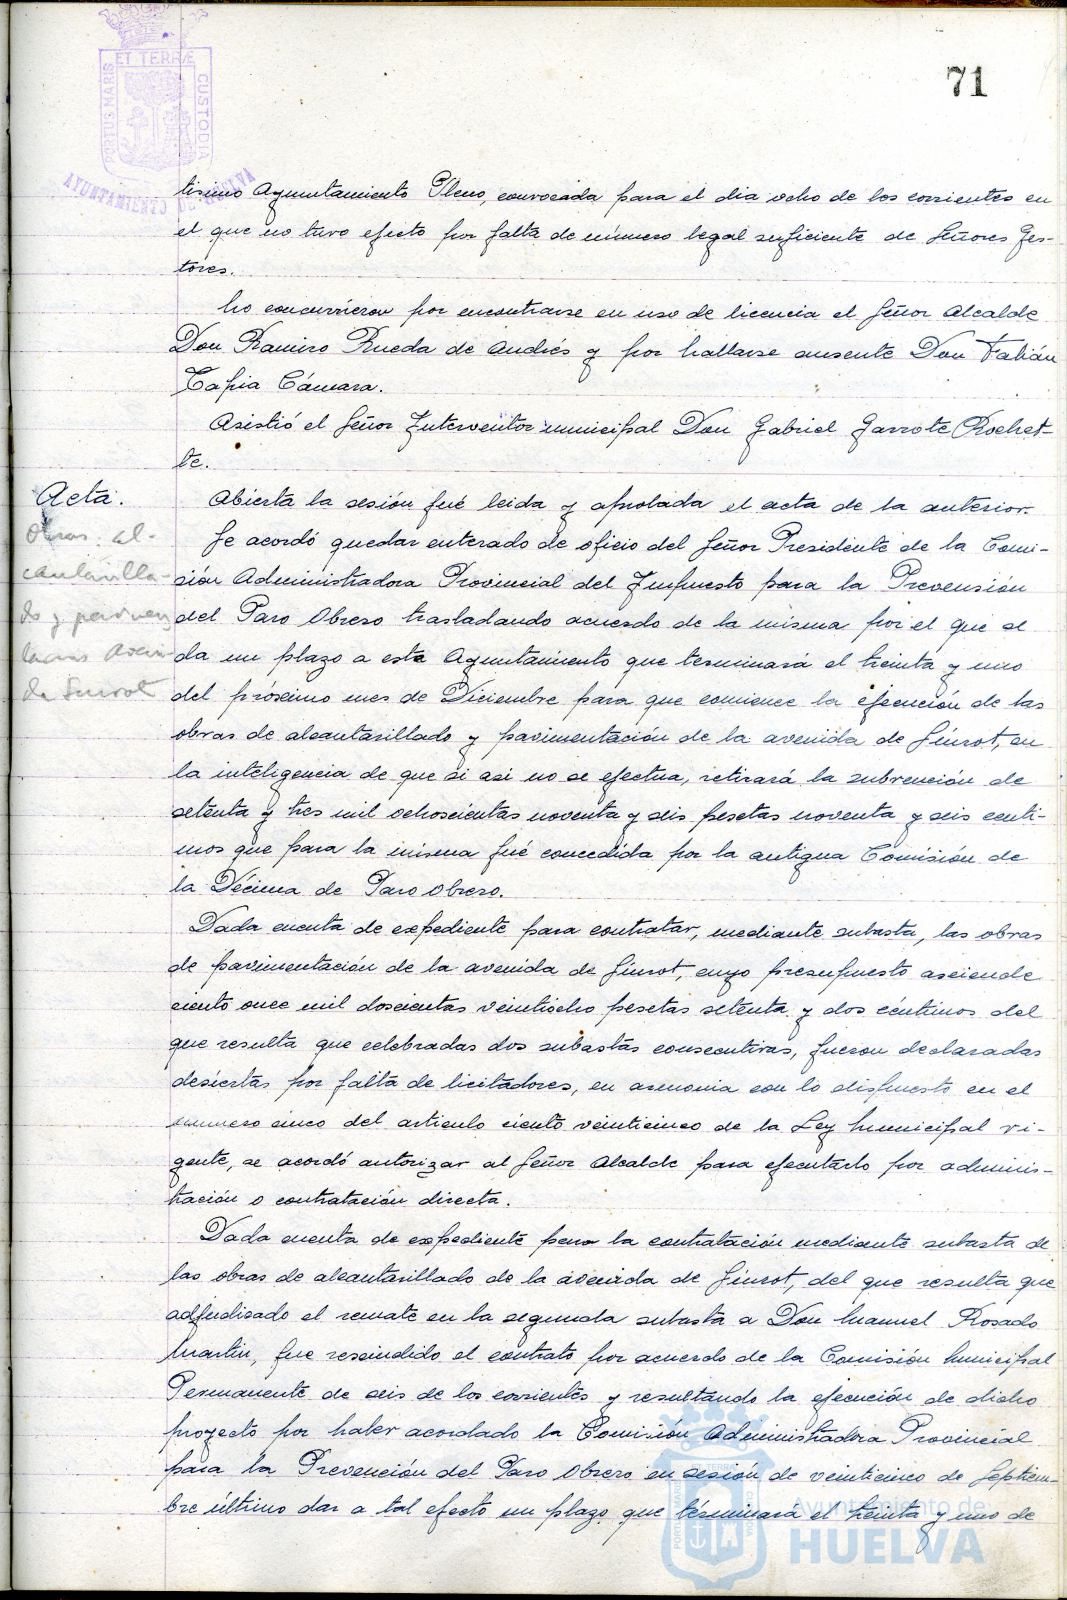 71
PORTUS MARIS ET TERRÆ CUSTODIA
AYUNTAMIENTO DE HUELVA
tisimo Ayuntamiento Pleno, convocada para el dia ocho de los corrientes en
el que no tuvo efecto por falta de número legal suficiente de Señores Ges-
tores.
No concurrieron por encontrarse en uso de licencia el Señor Alcalde
Don Ramiro Rueda de Andrés y por hallarse ausente Don Fabián
Tapia Cámara.
Asistió el Señor Interventor municipal Don Gabriel Garrote Rochet-
te.
Acta.
Abierta la sesión fué leida y aprobada el acta de la anterior.
Obras. al-
cantarilla-
do y pavimen
de Sunrot
Se acordó quedar enterado de oficio del Señor Presidente de la Comi-
sión Administradora Provincial del Impuesto para la Prevensión
del Paro Obrero trasladando acuerdo de la misma por el que se
da un plazo a este Ayuntamiento que terminará el treinta y uno
del próximo mes de Diciembre para que comience la ejecución de las
obras de alcantarillado y pavimentación de la avenida de Súnrot, en
la inteligencia de que si asi no se efectua, retirará la subvención de
setenta y tres mil ochoscientas noventa y seis pesetas noventa y seis centi-
mos que para la misma fué concedida por la antigua Comisión de
la Décima de Paro Obrero.
Dada cuenta de expediente para contratar, mediante subasta, las obras
de pavimentación de la avenida de Súnrot, cuyo presupuesto asciende
ciento once mil doscientas veintiocho pesetas setenta y dos céntimos del
que resulta que celebradas dos subastas consecutivas, fueron declaradas
desiertas por falta de licitadores, en armonia con lo dispuesto en el
numero cinco del articulo ciento veinticinco de la Ley Municipal vi-
gente, se acordó autorizar al Señor Alcalde para ejecutarlo por adminis-
tración o contratación directa.
Dada cuenta de expediente para la contratación mediante subasta de
las obras de alcantarillado de la avenida de Súnrot, del que resulta que
adjudicado el remate en la segunda subasta a Don Manuel Rosado
Martin, fue rescindido el contrato por acuerdo de la Comisión Municipal
Permanente de seis de los corrientes y resultando la ejecución de dicho
proyecto por haber acordado la Comisión Administradora Provincial
para la Prevención del Paro Obrero en sesión de veinticinco de Septiem-
bre último dar a tal efecto un plazo que terminará el treinta y uno de
Ayuntamiento de
HUELVA